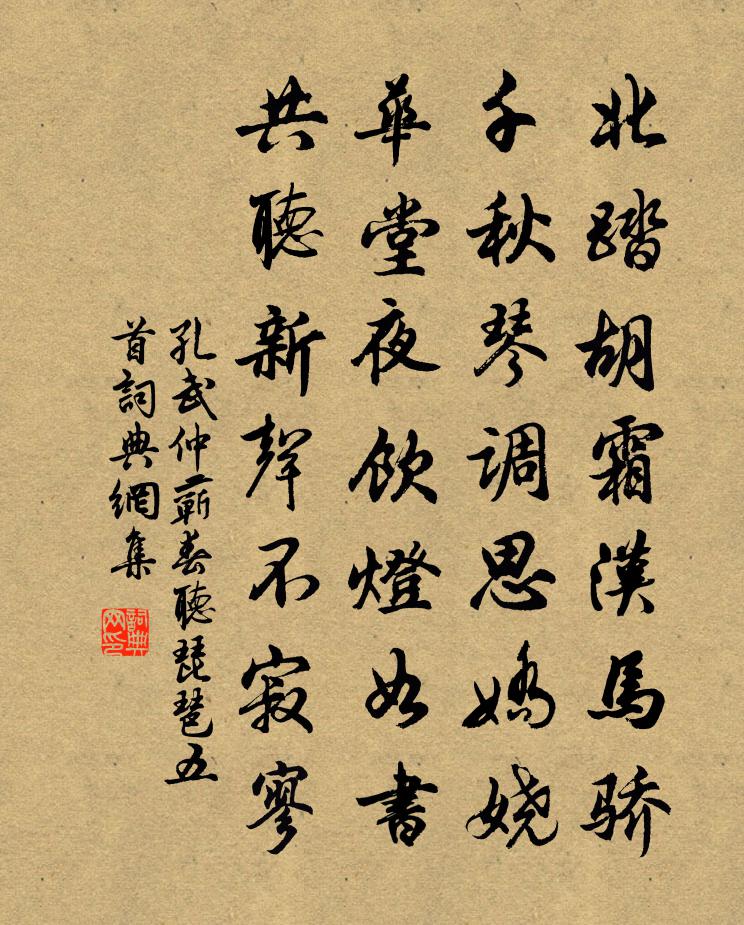 北踏胡霜漢馬骄
千秋琴调思嬌娆
華堂夜飲燈如書
共聽新聲不寂寥
孔武仲蘄春聽琵琶五
首詞典網集
詞典网印